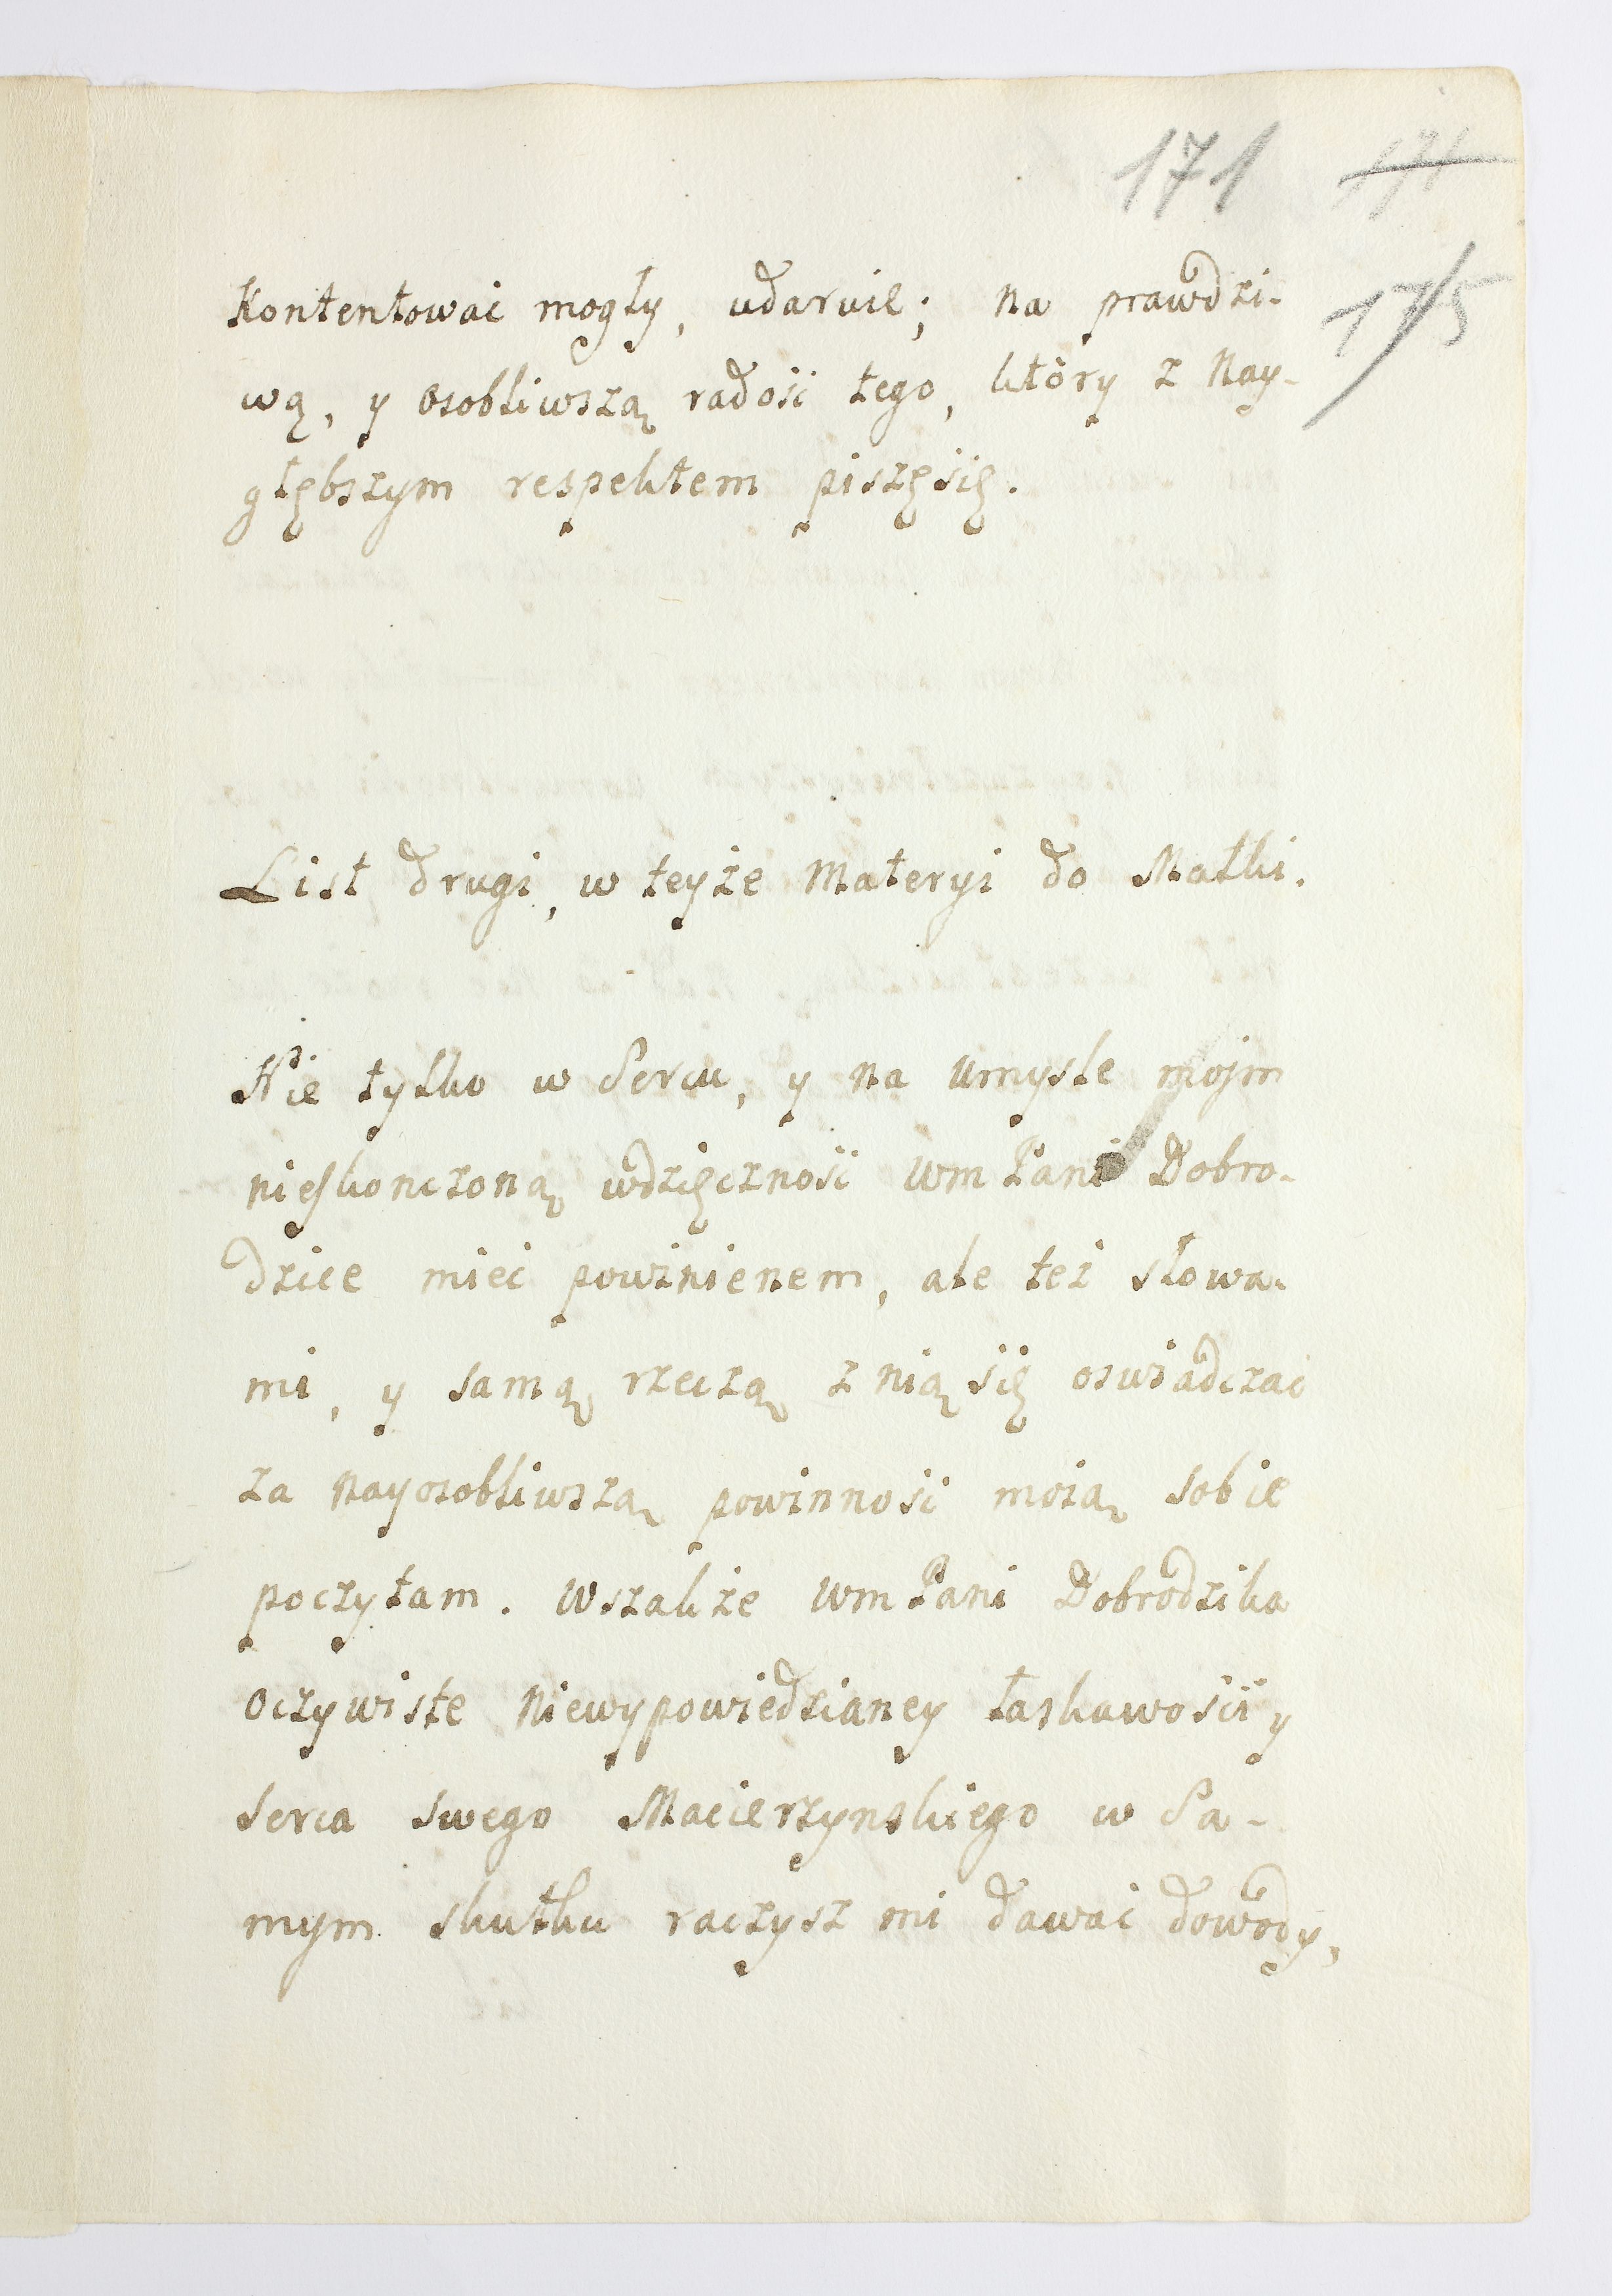 171 171
175
Kontentować mogły, udaruie; na prawdzi-
wą, y osobliwszą radość tego, który z Nay-
głębszym respektem piszęsię.
List drugi, w teyże Materyi do Matki.
Nie tylko w Sercu, y na umyśle mojm
nieskonczoną wdzięczność WmPani Dobro-
dzice mieć powinienem, ale też słowa-
mi, y samą rzeczą z nią się oswiadczać
za nayosobliwszą powinność moią sobie
poczytam. Wszakże WmPani Dobrodzika
oczywiste niewypowiedzianey łaskawości y
serca swego Macierzynskiego w Sa-
mym skutku raczysz mi dawać dowody,